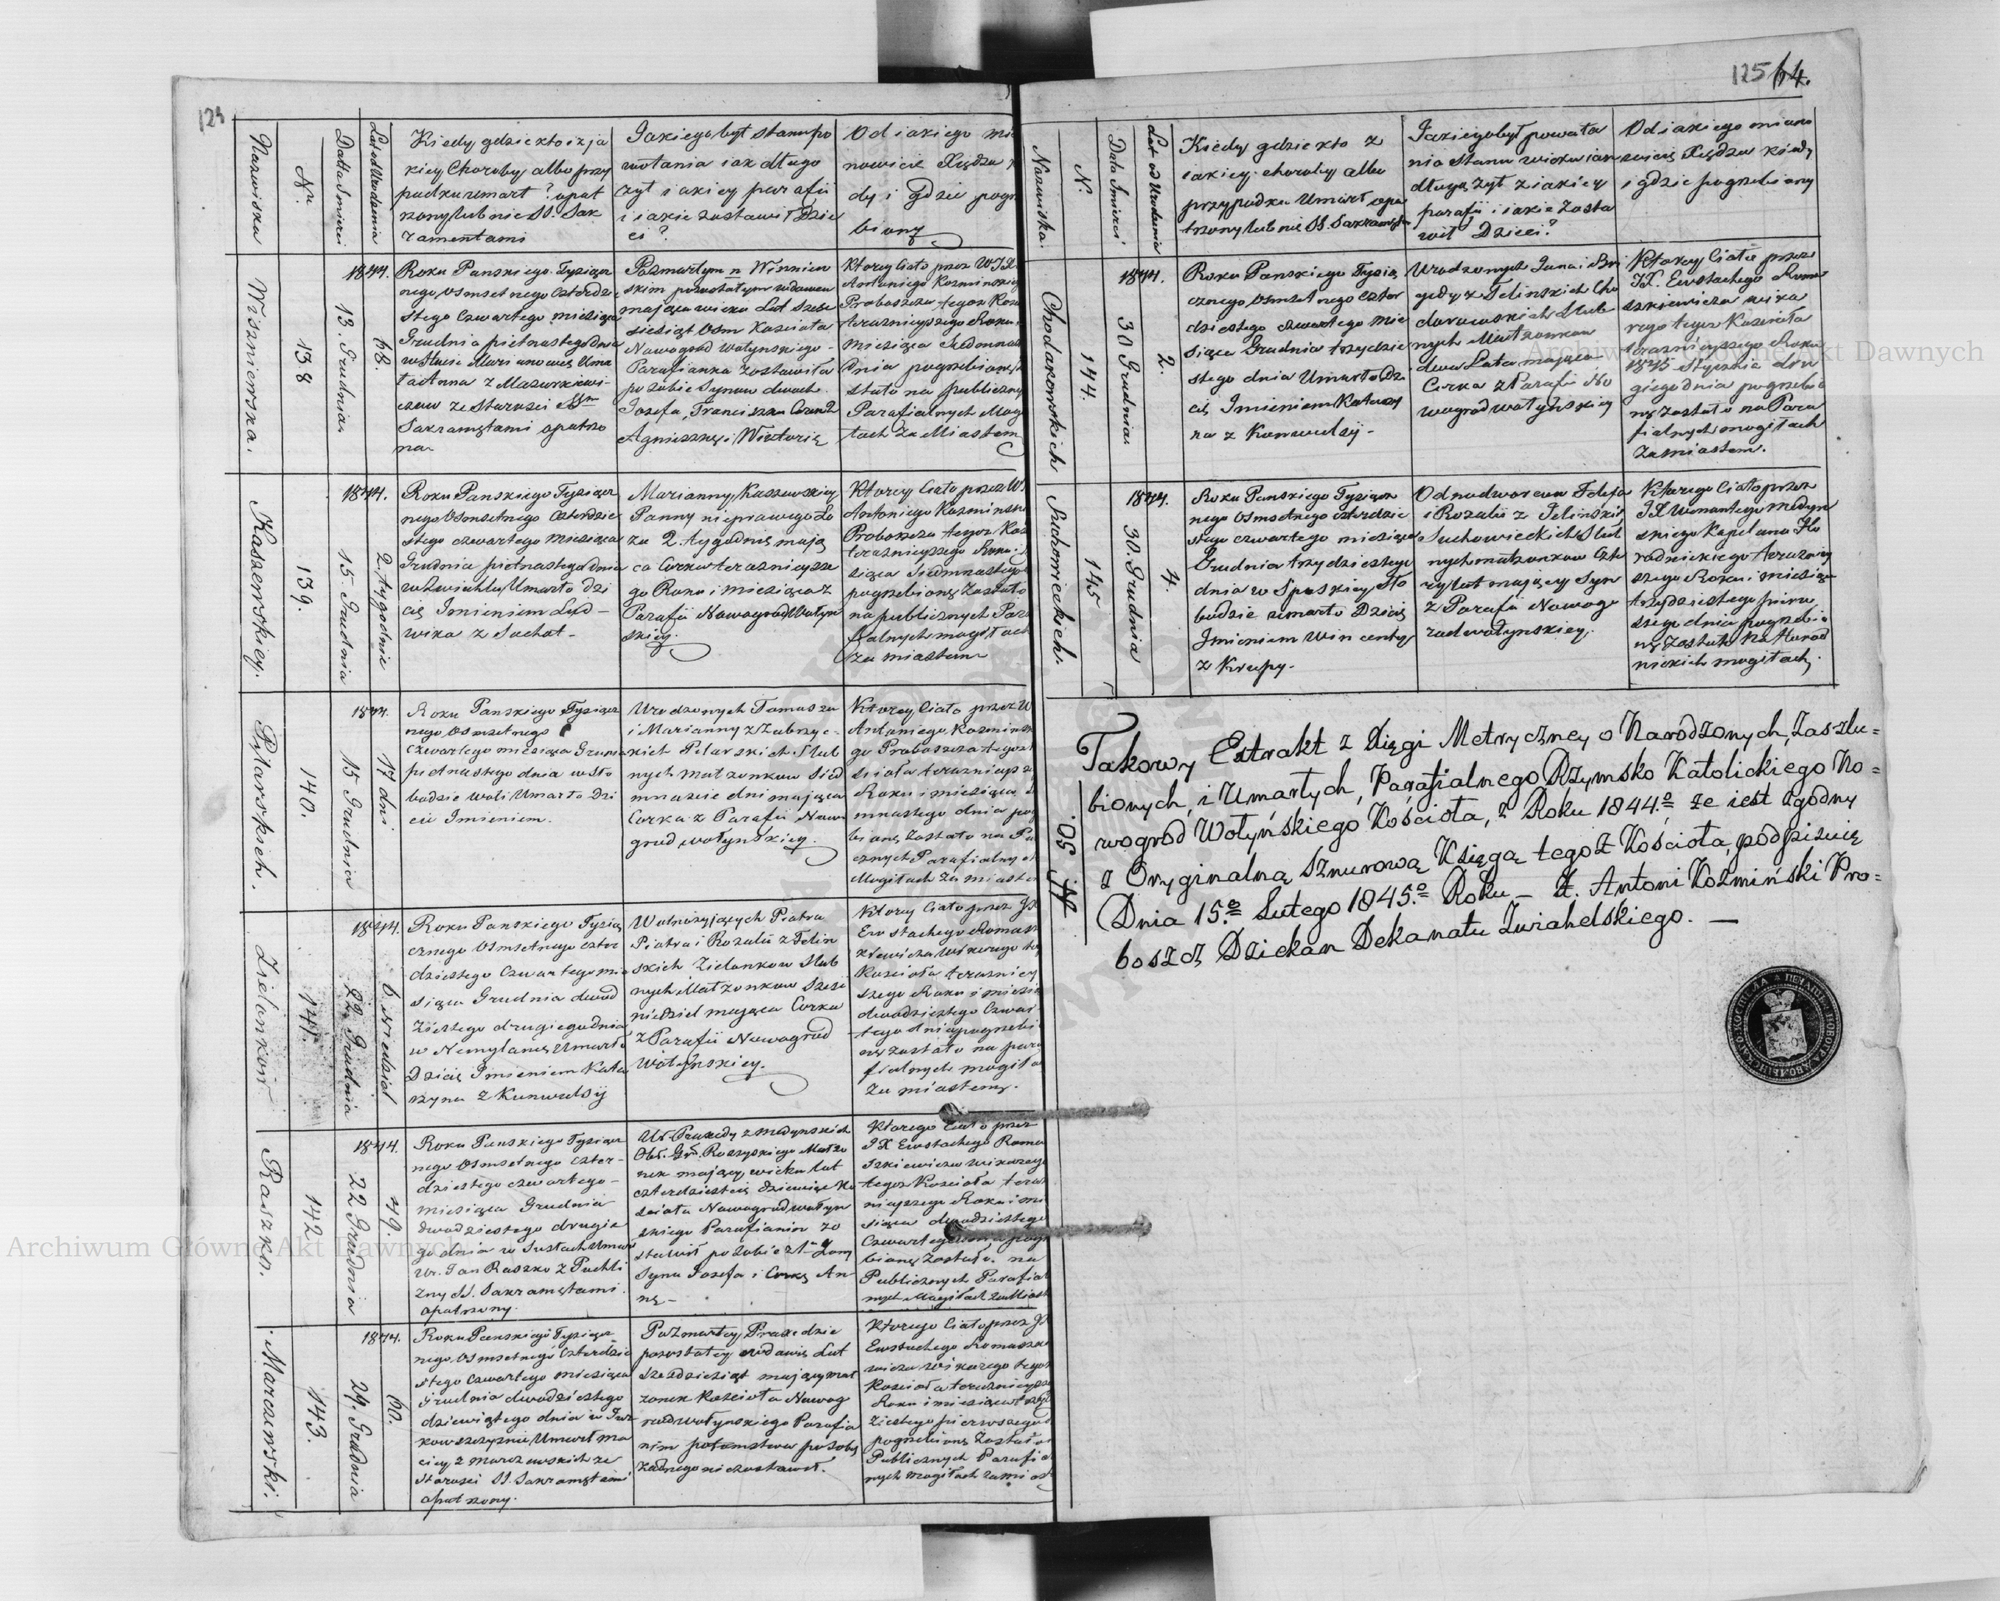 124
Nazwiska
Nru
Datta Smierci
Lat od Urodzenia
Kiedy gdzie kto i z ja
kiey Choroby albo przy
padku umart? opat
rzony lub nie SS. Sak
ramentami
Jakiego był stanu po
wołania iak długo
żył i akiey parafii
i iakie zostawił Dzie
ci?
Od iakiego mia
nowicie Xiędza
dy i gdzie pogr
biony
Wiszniowska.
138
1844.
13 Grudnia.
68.
Roku Panskiego Tysiącz
nego Osmsetnego Czterdzie
stego Czwartego miesiąca
Grudnia pietnastego dnia
Maryanowce Uma
ta Anna z Mazurkiewi
czow ze Starosci SSm
Sakramętami opatrzo
na
Po zmarłym Wiszniow
skim pozostałym wdowa
mająca wieku Lat Szesc
dziesiąt Osm Kościoła
Nowogrod Wołynskiego
Parafianka zostawiła
po sobie Synow dwoch
Jozefa, Franciszka Corek 2
Agnieszkę i Wiktorię
Ktorey Ciało przez W JX
Antoniego Kozminskie
Proboszcza tegoz Kos
terazniejszego Roku
miesiąca Siedmnas
dnia pogrzebione
stało na publiczny
Parafialnych Mog
iłach za Miastem
Kaszewskiey.
139.
1844.
15 Grudnia
2 tygodnie
Roku Panskiego Tysiącz
nego Osmsetnego Czterdzie
stego czwartego miesiąca
Grudnia pietnastego dnia
w Zwiahlu Umarło dzi
cię Imieniem Lud-
wika z Suchot-
Marianny Kaszewskiey
Panny nieprawego Ło
za 2. tygodnie mają
ca Corka terazniejsze
go Roku i miesiąca z
Parafii Nowogrod Wołyn
skiey.
Ktorey Ciało przez W.
Antoniego Kozminski
Proboszcza tegoz Kos
terazniejszego Roku
siąca Siedmnastego
pogrzebione Zostało
na publicznych Para
fialnych mogiłach
za miastem
Pilarskich.
140.
1844.
15 Grudnia
17 dni
Roku Panskiego Tysiącz
nego Osmsetnego
Czwartego miesiąca Grud
pietnastego dnia w Sło
bodzie woli Umarło Dzi
cie Imieniem.
Urodzonych Tomasza
i Marianny z Zabrzyc-
kich Pilarskich Slub
nych Małzonkow Sied
mnascie dni mająca
Corka z Parafii Nowo
grod wołynskiey.
Ktorey Ciało przez W
Antoniego Kozmins
go Proboszcza tegoz
scioła terazniejsz
Roku i miesiąca
mnastego dnia po
bione Zostało na Pu
cznych Parafialnych
Mogiłach za miastem
Zielonkow
141.
1844.
22 Grudnia
6 niedziel
Roku Panskiego Tysią
cznego Osmsetnego czter
dziestego Czwartego mie
siąca Grudnia dwod
ziestego drugiego dnia
w Nemylance Umarło
Dzicię Imieniem Kata
rzyna z Kunwulsij
Wolnozyjących Piotra
Piotra i Rozalii z Telin
skich Zielonkow Slub
nych Małzonkow Szesc
niedziel mająca Corka
z Parafii Nowogrod
Wołynskiey.
Ktorey Ciało przez JX
Eustachego Romasz
kiewicza Wikarego te
Kościoła terazniey
szego Roku i miesią
dwadziestego Czwar
tego dnia pogrzebi
one zostało na para
fialnych mogiła
za miastem.
Raszko.
142
1844.
22 Grudnia
49.
Roku Panskiego Tysiącz
nego Osmsetnego czter-
dziestego czwartego-
miesiąca Grudnia
dwadziestego drugie
go dnia w Sustach Umar
Ur. Jan Raszko z Puchli
zny SS. Sakramętami
opatrzony.
Ur. Praxedy z Modynskich
mający wieku lat
czterdziesci dziewięc Ko
scioła Nowogrod wołyn
skiego Parafianin zo
stawił po sobie
Syna Jozefa i Corkę An
nę-
Ktorego Ciało przez
JX Eustachego Roma
szkiewicza wikarego
tegoz Kościoła teraz
niejszego Roku i mie
siąca dwodziestego
Czwartego dnia pogr
bione Zostało na
Publicznych Parafial
nych Mogiłach za Miast
Marczewski.
143.
1844.
29. Grudnia
60.
Roku Panskiego Tysiącz
nego Osmsetnego Czterdzie
stego czwartego miesiąca
Grudnia dwodziestego
dziewiątego dnia w
Umarł Ma
ciey z Marczewskich ze
Starosci SS. Sakramętami
opatrzony.
Po Zmarłey Praxedzie
pozostałey wdowiec Lat
szezdziesiąt mający mał
zonek Kościoła Nowog
rod wołynskiego Parafia
nin potomstwa po sobie
zadnego nie zostawił.
Ktorego Ciało przez JX
Eustachego Romaszk
wicza wikarego tegoz
Kościoła terazniejsze
Roku i miesiąca trzy
ziestego pierwszego
pogrzebione Zostało
Publicznych Parafial
nych mogiłach za miast
125 64.
Nazwiska.
N
Data Smierci
Lat od Urodzenia
Kiedy gdzie kto z
iakiey choroby albo
przypadku Umarł opa
trzony lub nie SS. Sakramęta
Jakiego był powoła
nia Stanu wieku iak
długo żył z iakiey
parafii i iakie Zosta
wił Dzieci?
Od iakiego miano
wicie Xiędza kiedy
i gdzie pogrzebiony
Chodakowskich
144.
1844.
30 Grudnia.
2.
Roku Panskiego Tysią
cznego Osmsetnego czter
dziestego czwartego mie
siąca Grudnia trzydzie
stego dnia Umarło Dzi
cię Imieniem Katarzy
na z Konwulsij-
Urodzonych Jana i Bry
gidy z Telinskich Cho
dakowskich Slub
nych Małzonkow
dwa Lata mająca
Corka z Parafii No
wogrod wołynskiey
Ktorey Ciało przez
JX. Eustachego Roma
szkiewicza wika
rego tegoz Kościoła
terazniejszego Roku
1845 Stycznia dru
giego dnia pogrzebio
ne zostało na Para
fialnych mogiłach
za miastem.
Suchowieckich.
145
1844.
30. Grudnia
4.
Roku Panskiego Tysiącz
nego Osmsetnego czterdzie
stego czwartego miesiąca
Grudnia trzydziestego
dnia w Spaskiey Sło
bodzie umarło Dzicię
Imieniem Wincenty
z Krupy-
Odnodworcow Jozefa
i Rozalii z Telinskich
Suchowieckich Slub
nych małzonkow Czte
ry lat mający Syn
z Parafii Nowog
rod wołynskiey.
Ktorego Ciało przez
JX Wenantego Modyn
skiego Kapelana Ho
rodnickiego terazniey
szego Roku i miesiąca
trzydziestego pierw
szego dnia pogrzebio
ne Zostało na Horod
nickich mogiłach.
Takowy Extrakt z Xięgi Metryczney o Narodzonych, Zaszlu=
bionych, i Umarłych, Parafialnego Rzymsko Katolickiego No=
wogród Wołyńskiego Kościoła, z Roku 1844.o że iest zgodny
z Oryginalną sznurową Xięgą tegoż Kościoła, podpisuię
Dnia 15.o Lutego 1845.o Roku_ X. Antoni Koźmiński Pro=
boszcz Dziekan Dekanatu Zwiahelskiego. —
Archiwum Główne Akt Dawnych
Archiwum Główne Akt Dawnych